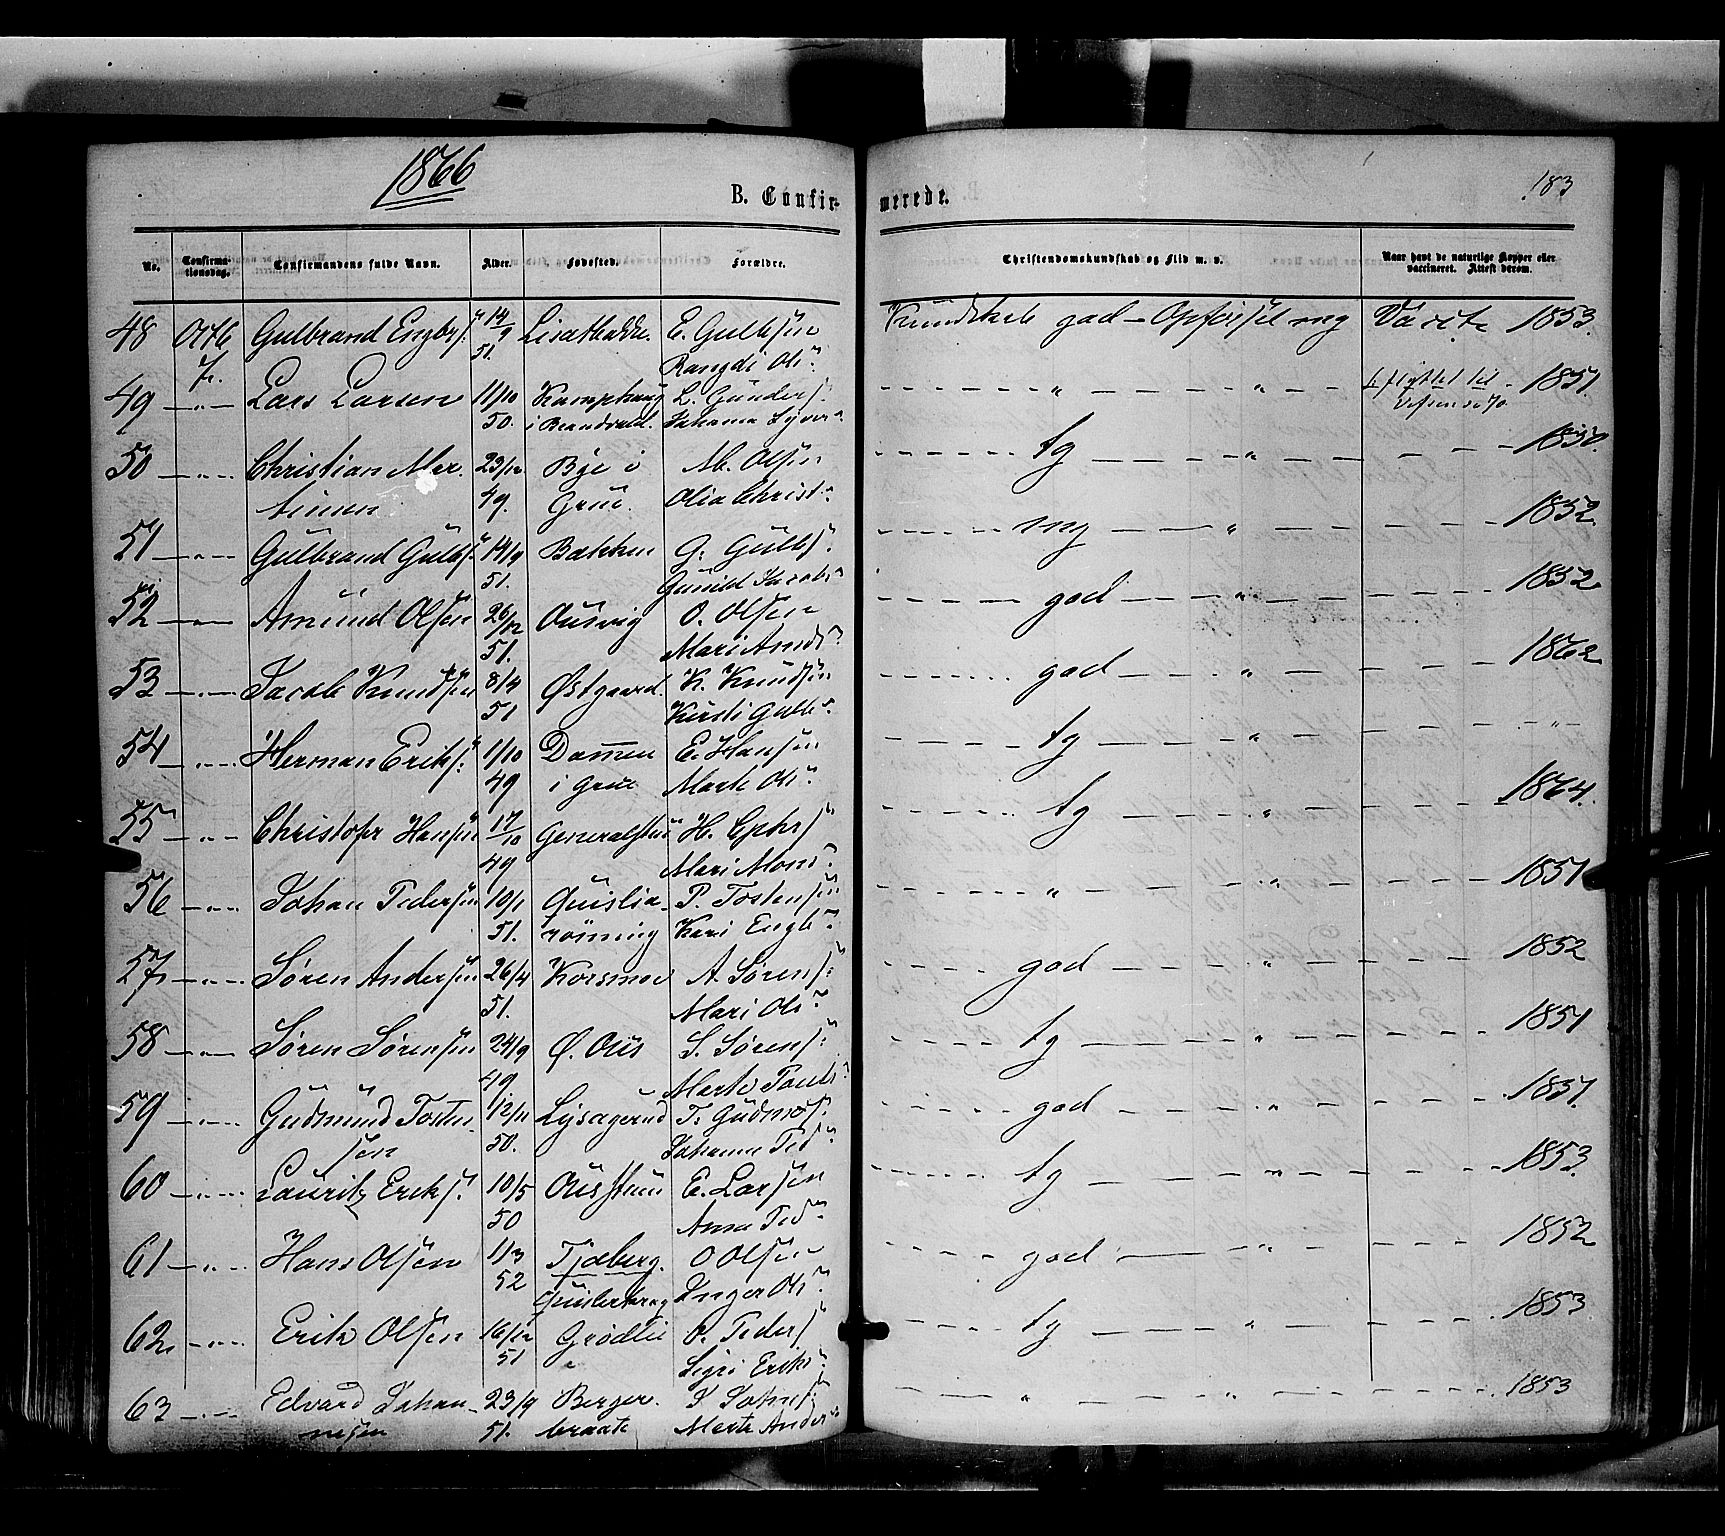 1866
183
B. Confirmerede.
No. Confirmationsdag. Confirmandens fulde Navn. Alder. Fødested. Forældre. Christendomskundskab og Flid m. v. Naar havt de naturlige Kopper eller vaccineret. Attest derom.
48 Gulbrand Engbrs: 14/9 E. Gulbsen Kundskab god – Opførsel mg 1853.
7. 51. Rangdi Ols:
49 — " — Lars Larsen 11/10 Kamphaug L. Gunders: " " flyttet til 1851.
50. i Brandvold. Johanna Syver
50 — " — Christian Mar 23/12 Bye i M. Olsen tg " 1850
tinsen 49. Grue. Olia Christ:
51 — " — Gulbrand Gulbs: 14/9 Bakken G. Gulbs: mg " 1852
51. Gunild Jacobs:
52 — " — Amund Olsen 26/12 Ousvig O. Olsen god " 1852
51. Mari Amds:
53 — " — Jacob Knudsen 8/4 Østgaard K. Knudsen god " 1862
51 Kirsti Gulb:
54 — " — Herman Eriks: 1/10 Dammen E. Hansen tg " "
49 i Grue Marte Ols:
55 — " — Christofer Hansen 17/10 H. Ephrs: tg " 1864.
49 Mari Mons:
56 — " — Johan Pedersen 10/1 Quislia P. Tostensen " " 1851
51. rönning Kari Engb:
57 — " — Søren Andersen 26/4 Korsmoe A. Sørens: god " 1852
51. Mari Ols:
58 — " — Søren Sørensen 24/9 Ø. Ous S. Sørens: tg " 1851
49 Marte Pouls:
59 — " — Gudmund Tosten 12/11 Lysagerud T. Gudms: god " 1851.
sen 50. Johanne Ped:
60 — " — Lauritz Eriks: 10/5 E. Larsen tg " 1853
50 Anna Ped:
61 — " — Hans Olsen 1/3 Tjæberg. O Olsen god " 1852
52 Inger Ols:
62 — " — Erik Olsen 16/12 Grødlie O. Peders: tg " 1853
51 Sigri Eriks:
63 — " — Edvard Johan 23/9 Berger J. Johns: " " 1853
nesen 51. braate Marte Anders